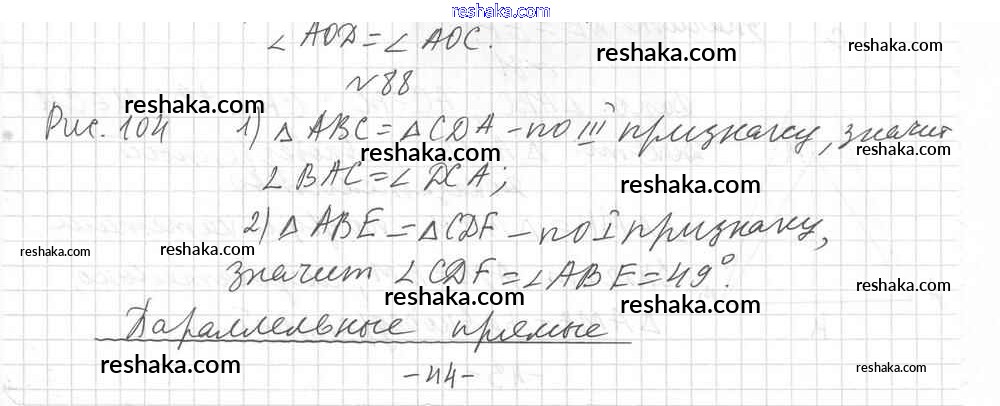 reshaka.com
∠ AOD = ∠ AOC.
reshaka.com
№88
reshaka.com
reshaka.com
Рис. 104 1) △ ABC = △ CDA – по III признаку, значит
reshaka.com
reshaka.com
∠ BAC = ∠ DCA;
reshaka.com
2) △ ABE = △ CDF – по I признаку,
reshaka.com
reshaka.com
reshaka.com
значит ∠ CDF = ∠ ABE = 49°.
reshaka.com
reshaka.com
reshaka.com
Параллельные прямые
reshaka.com
reshaka.com
-44-
reshaka.com
reshaka.com